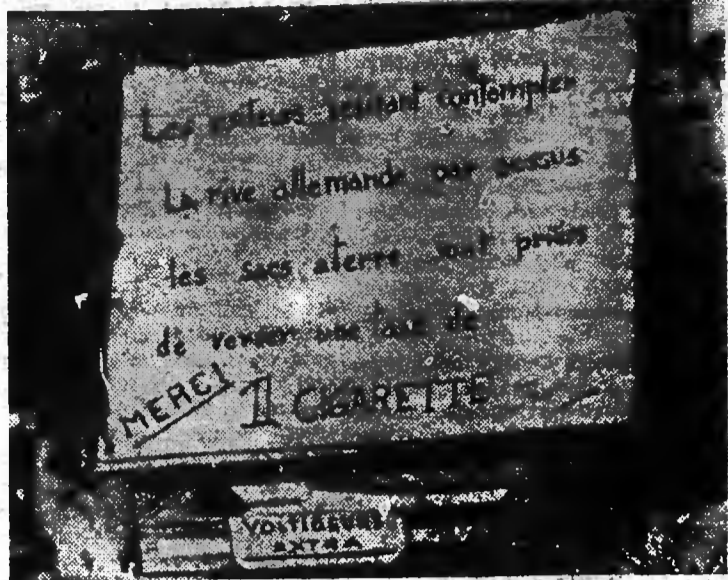 Les visiteurs venant contempler
la rive allemande par dessus
les sacs aterre sont priés
de verser une taxe de
MERCI 1 CIGARETTE
EXTRA